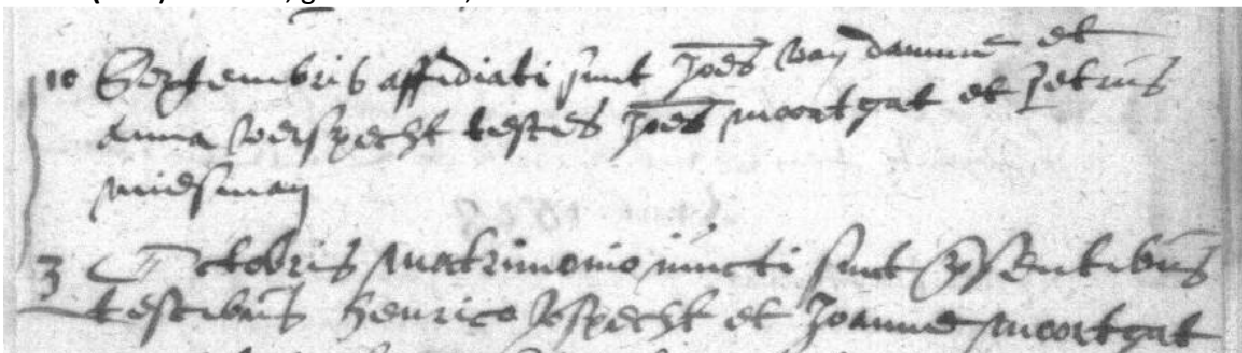 10 Septembris affidiati sunt Joes van damme et
Anna Verspecht testes Joes moortgat et petrus
miesman
3 Octobris matrimonio iuncti sunt psentibus
testibus Henrico Vspecht et Joanne moortgat